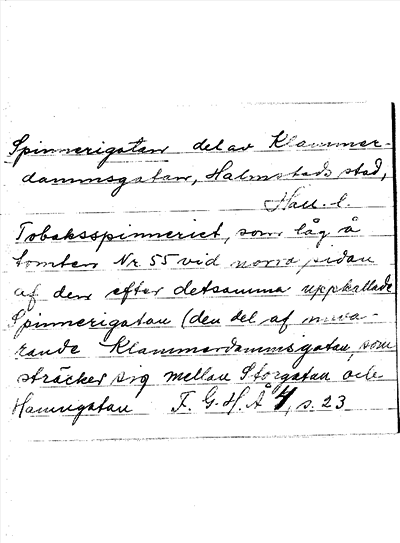 Spinnerigatan del av Klammer-
dammsgatan, Halmstads stad,
Hall. l.
Tobaksspinneriet, som låg å
tomten Nr 55 vid norra sidan
af den efter detsamma uppkallade
Spinnerigatan (den del af nuva-
rande Klammerdammsgatan, som
sträcker sig mellan Storgatan och
Hamngatan F. G. H. Å 4, s. 23